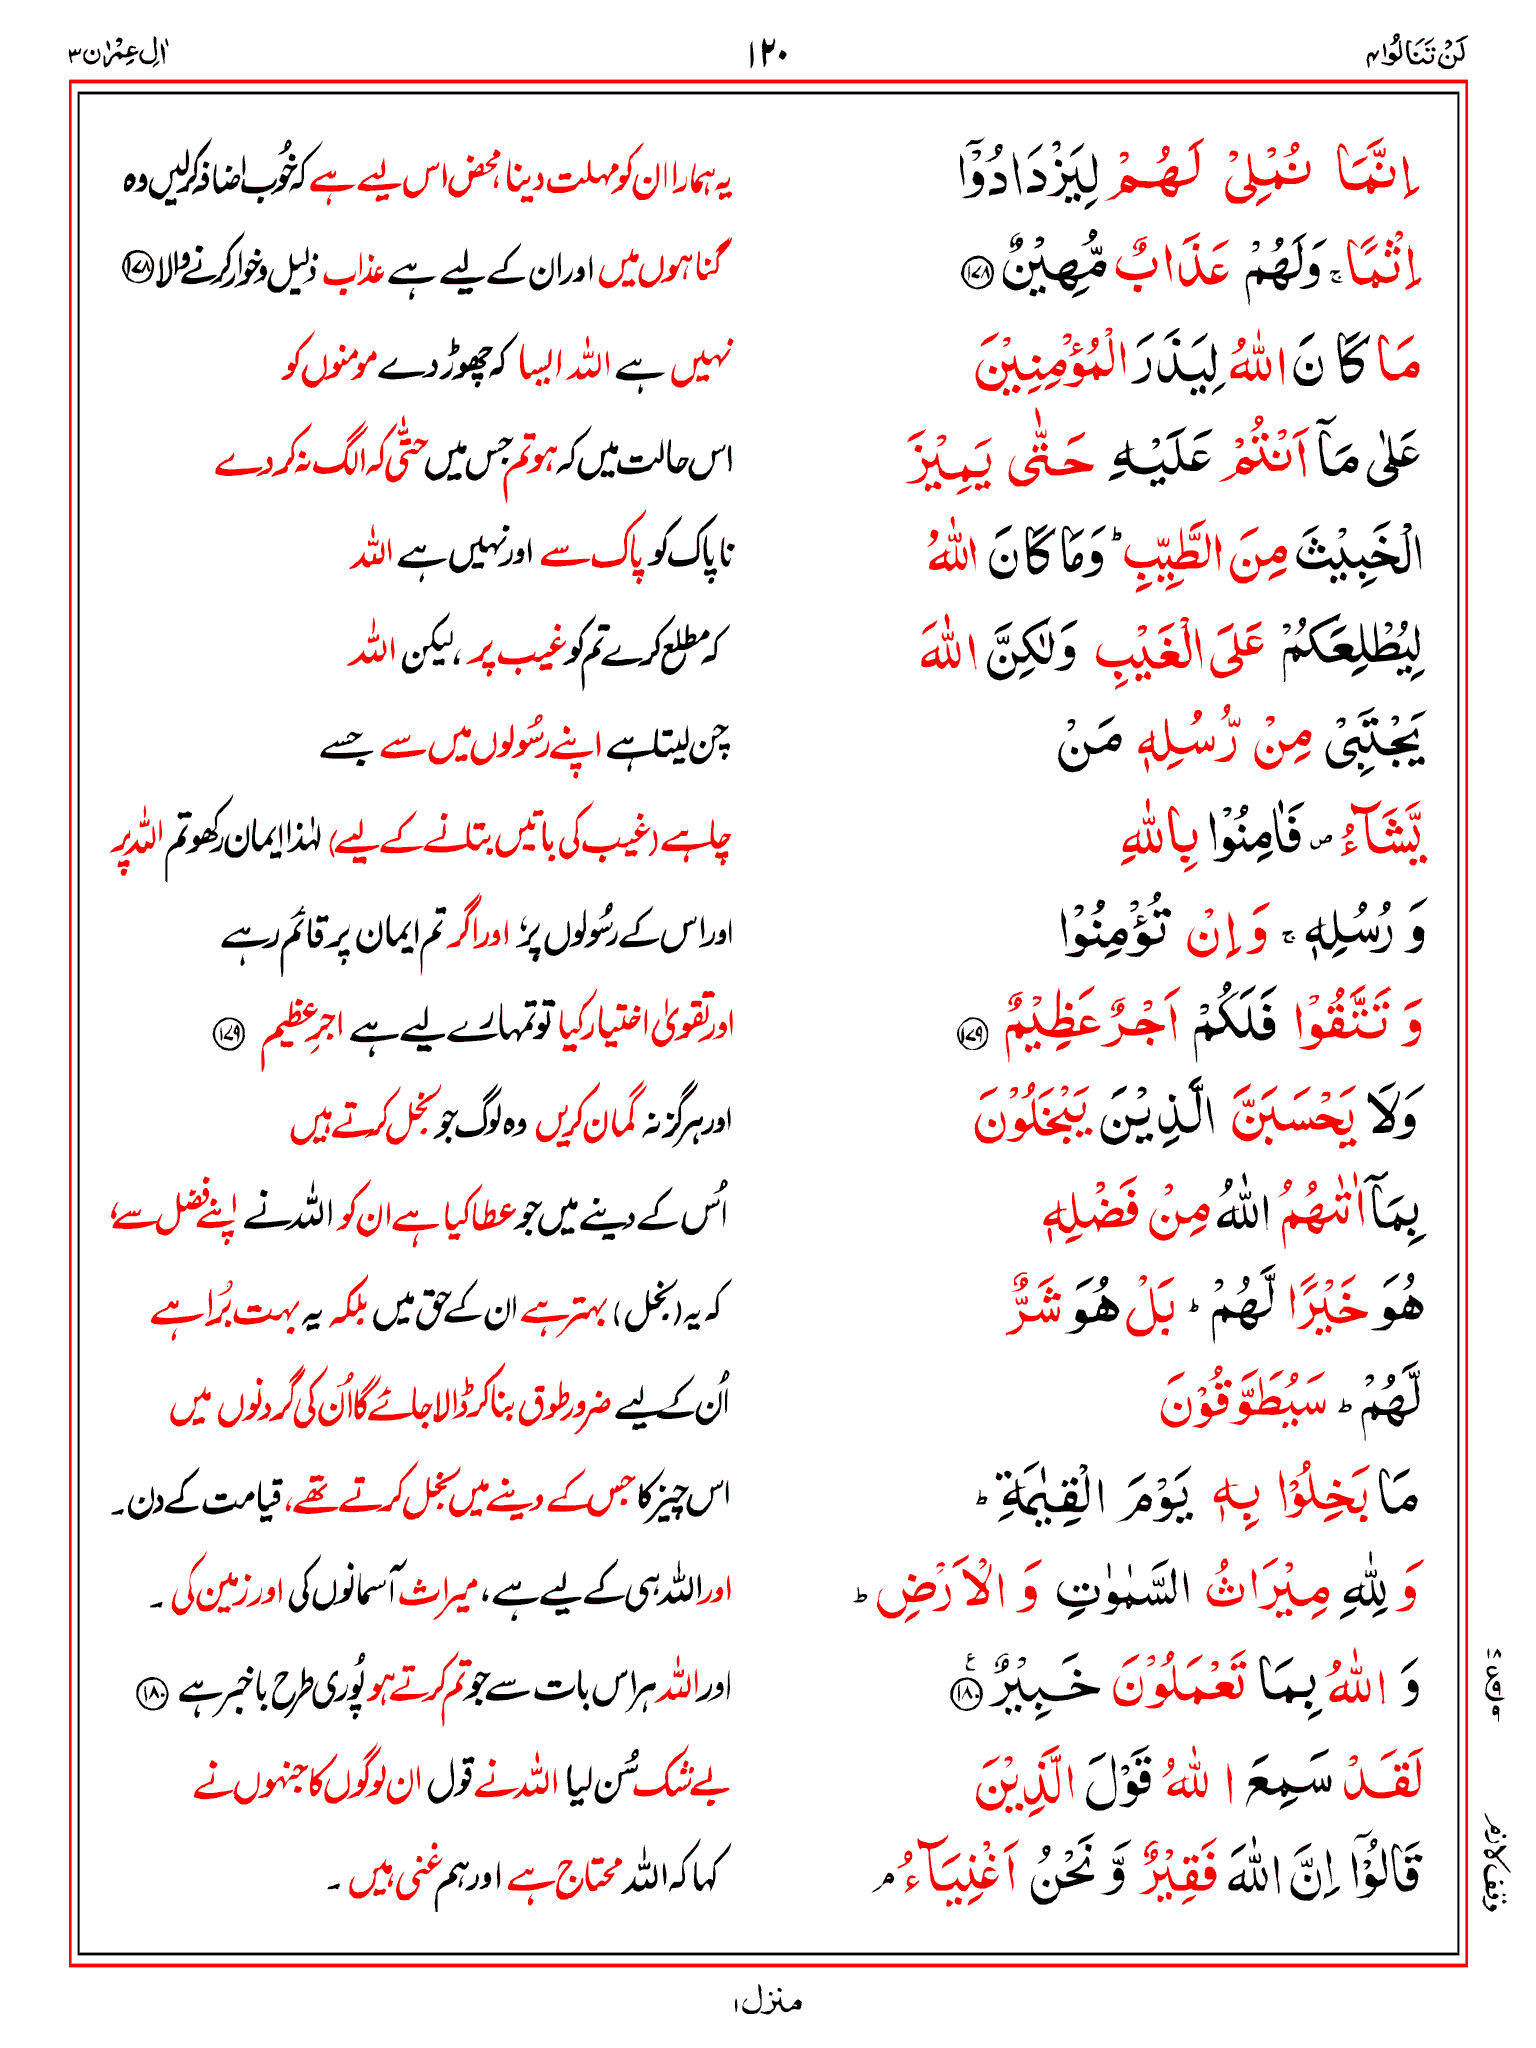 لَنْ تَنَالُوا۴ ۱۲۰ اٰلِ عِمْرٰن۳
اِنَّمَا نُمْلِیْ لَهُمْ لِیَزْدَادُوْۤا یہ ہمارا ان کو مہلت دینا، محض اس لیے ہے کہ خُوب اضافہ کرلیں وہ
اِثْمًا ۚ وَلَهُمْ عَذَابٌ مُّهِیْنٌ ۝۱۷۸ گناہوں میں اور ان کے لیے ہے عذاب ذلیل و خوار کرنے والا ۝۱۷۸
مَا كَانَ اللّٰهُ لِیَذَرَ الْمُؤْمِنِیْنَ نہیں ہے اللہ ایسا کہ چھوڑ دے مومنوں کو
عَلٰی مَاۤ اَنْتُمْ عَلَیْهِ حَتّٰی یَمِیْزَ اس حالت میں کہ ہو تم جس میں حتّٰی کہ الگ نہ کر دے
الْخَبِیْثَ مِنَ الطَّیِّبِ ؕ وَمَا كَانَ اللّٰهُ ناپاک کو پاک سے اور نہیں ہے اللہ
لِیُطْلِعَكُمْ عَلَی الْغَیْبِ وَلٰكِنَّ اللّٰهَ کہ مطلع کرے تم کو غیب پر، لیکن اللہ
یَجْتَبِیْ مِنْ رُّسُلِهٖ مَنْ چن لیتا ہے اپنے رسُولوں میں سے جسے
یَّشَآءُ ۪ فَاٰمِنُوْا بِاللّٰهِ چاہے (غیب کی باتیں بتانے کے لیے) لہٰذا ایمان رکھو تم اللہ پر
وَ رُسُلِهٖ ۚ وَ اِنْ تُؤْمِنُوْا اور اس کے رسُولوں پر، اور اگر تم ایمان پر قائم رہے
وَ تَتَّقُوْا فَلَكُمْ اَجْرٌ عَظِیْمٌ ۝۱۷۹ اور تقویٰ اختیار کیا تو تمہارے لیے ہے اجرِ عظیم ۝۱۷۹
وَلَا یَحْسَبَنَّ الَّذِیْنَ یَبْخَلُوْنَ اور ہرگز نہ گمان کریں وہ لوگ جو بخل کرتے ہیں
بِمَاۤ اٰتٰىهُمُ اللّٰهُ مِنْ فَضْلِهٖ اُس کے دینے میں جو عطا کیا ہے ان کو اللہ نے اپنے فضل سے،
هُوَ خَیْرًا لَّهُمْ ؕ بَلْ هُوَ شَرٌّ کہ یہ (بخل) بہتر ہے ان کے حق میں بلکہ یہ بہت بُرا ہے
لَّهُمْ ؕ سَیُطَوَّقُوْنَ اُن کے لیے ضرور طوق بنا کر ڈالا جائے گا اُن کی گردنوں میں
مَا بَخِلُوْا بِهٖ یَوْمَ الْقِیٰمَةِ ؕ اس چیز کا جس کے دینے میں بخل کرتے تھے، قیامت کے دن۔
وَ لِلّٰهِ مِیْرَاثُ السَّمٰوٰتِ وَ الْاَرْضِ ؕ اور اللہ ہی کے لیے ہے، میراث آسمانوں کی اور زمین کی۔
وَ اللّٰهُ بِمَا تَعْمَلُوْنَ خَبِیْرٌ ۝۱۸۰ ع اور اللہ ہر اس بات سے جو تم کرتے ہو پُوری طرح باخبر ہے ۝۱۸۰
لَقَدْ سَمِعَ اللّٰهُ قَوْلَ الَّذِیْنَ بے شک سُن لیا اللہ نے قول ان لوگوں کا جنہوں نے
قَالُوْۤا اِنَّ اللّٰهَ فَقِیْرٌ وَّ نَحْنُ اَغْنِیَآءُ ۘ کہا کہ اللہ محتاج ہے اور ہم غنی ہیں۔
وقف لازم
منزل۱